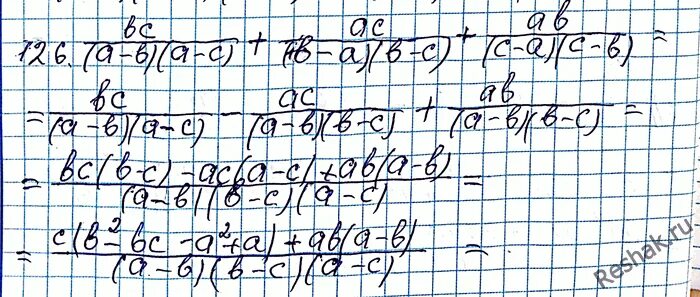 126. bc/((a-b)(a-c)) + ac/((b-a)(b-c)) + ab/((c-a)(c-b)) =
= bc/((a-b)(a-c)) - ac/((a-b)(b-c)) + ab/((a-b)(b-c)) =
= (bc(b-c) - ac(a-c) + ab(a-b))/((a-b)(b-c)(a-c)) =
= (c(b²-bc-a²+a) + ab(a-b))/((a-b)(b-c)(a-c)) =
Reshak.ru